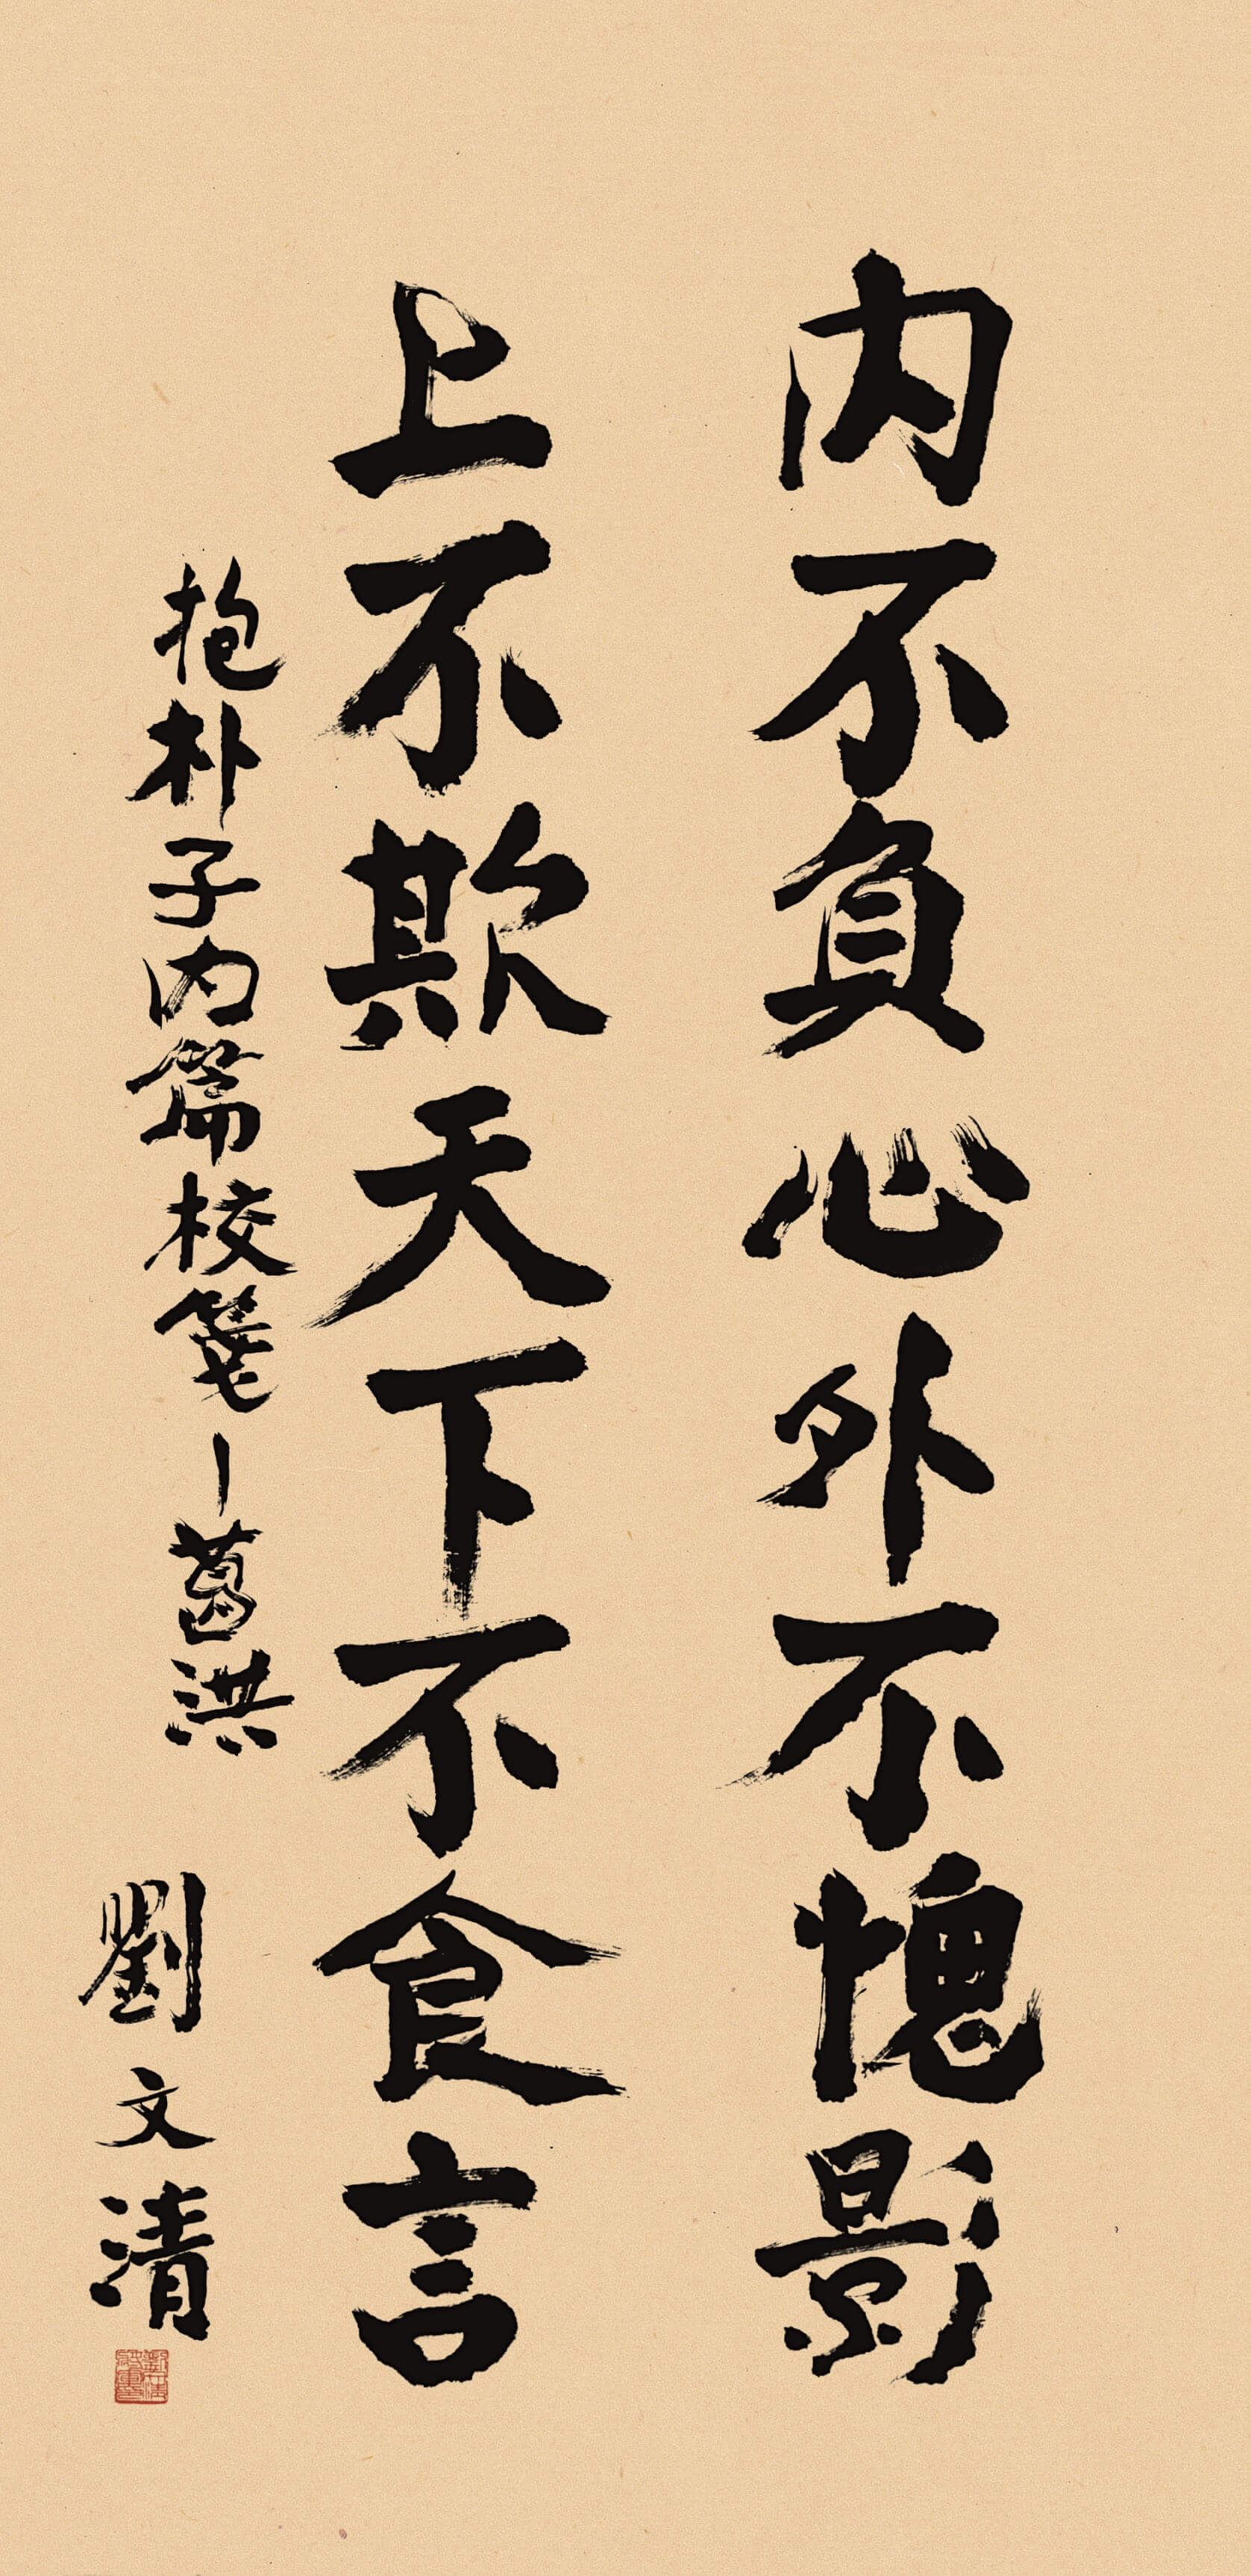 内不負心外不愧影
上不欺天下不食言
抱朴子内篇校箋-葛洪
劉文清